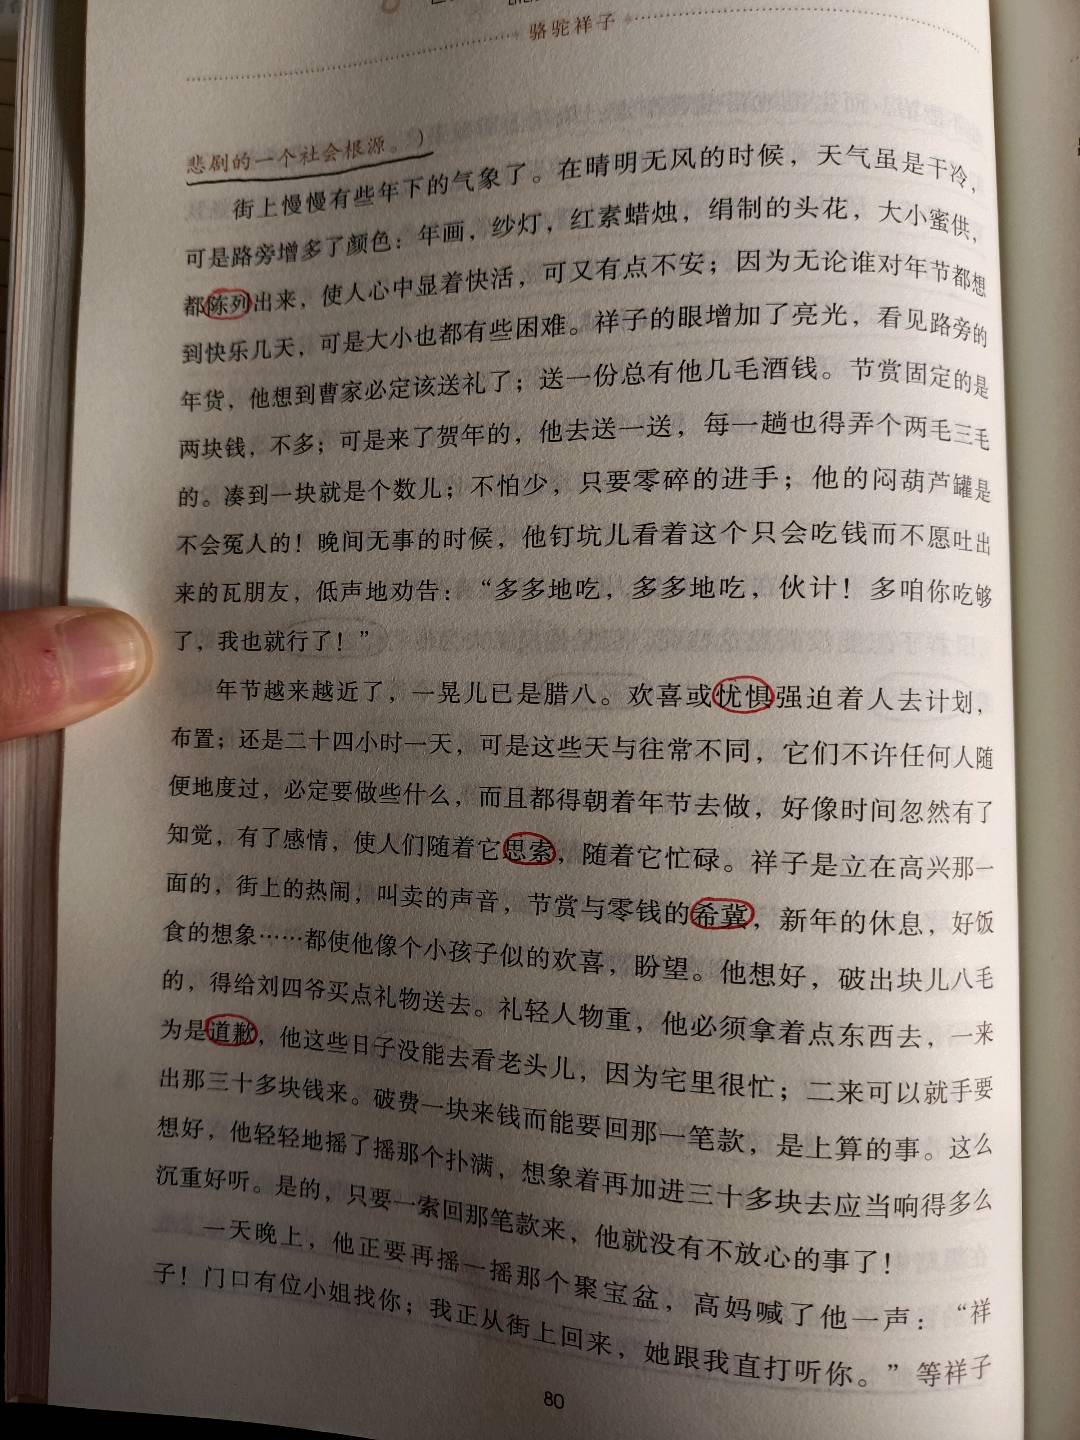 骆驼祥子
悲剧的一个社会根源。）
街上慢慢有些年下的气象了。在晴明无风的时候，天气虽是干冷，
可是路旁增多了颜色：年画，纱灯，红素蜡烛，绢制的头花，大小蜜供，
都陈列出来，使人心中显着快活，可又有点不安；因为无论谁对年节都想
到快乐几天，可是大小也都有些困难。祥子的眼增加了亮光，看见路旁的
年货，他想到曹家必定该送礼了；送一份总有他几毛酒钱。节赏固定的是
两块钱，不多；可是来了贺年的，他去送一送，每一趟也得弄个两毛三毛
的。凑到一块就是个数儿；不怕少，只要零碎的进手；他的闷葫芦罐是
不会冤人的！晚间无事的时候，他钉坑儿看着这个只会吃钱而不愿吐出
来的瓦朋友，低声地劝告：“多多地吃，多多地吃，伙计！多咱你吃够
了，我也就行了！”
年节越来越近了，一晃儿已是腊八。欢喜或忧惧强迫着人去计划，
布置；还是二十四小时一天，可是这些天与往常不同，它们不许任何人随
便地度过，必定要做些什么，而且都得朝着年节去做，好像时间忽然有了
知觉，有了感情，使人们随着它思索，随着它忙碌。祥子是立在高兴那一
面的，街上的热闹，叫卖的声音，节赏与零钱的希冀，新年的休息，好饭
食的想象……都使他像个小孩子似的欢喜，盼望。他想好，破出块儿八毛
的，得给刘四爷买点礼物送去。礼轻人物重，他必须拿着点东西去，一来
为是道歉，他这些日子没能去看老头儿，因为宅里很忙；二来可以就手要
出那三十多块钱来。破费一块来钱而能要回那一笔款，是上算的事。这么
想好，他轻轻地摇了摇那个扑满，想象着再加进三十多块去应当响得多么
沉重好听。是的，只要一索回那笔款来，他就没有不放心的事了！
一天晚上，他正要再摇一摇那个聚宝盆，高妈喊了他一声：“祥
子！门口有位小姐找你；我正从街上回来，她跟我直打听你。”等祥子
80